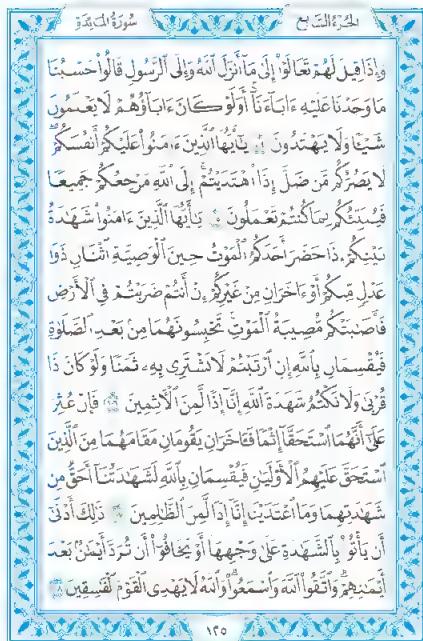 الجزء السابع
سورة المائدة
وَإِذَا قِيلَ لَهُمْ تَعَالَوْا۟ إِلَىٰ مَآ أَنزَلَ ٱللَّهُ وَإِلَى ٱلرَّسُولِ قَالُوا۟ حَسْبُنَا
مَا وَجَدْنَا عَلَيْهِ ءَابَآءَنَآ أَوَلَوْ كَانَ ءَابَآؤُهُمْ لَا يَعْلَمُونَ
شَيْـًٔا وَلَا يَهْتَدُونَ يَـٰٓأَيُّهَا ٱلَّذِينَ ءَامَنُوا۟ عَلَيْكُمْ أَنفُسَكُمْ
لَا يَضُرُّكُم مَّن ضَلَّ إِذَا ٱهْتَدَيْتُمْ إِلَى ٱللَّهِ مَرْجِعُكُمْ جَمِيعًا
فَيُنَبِّئُكُم بِمَا كُنتُمْ تَعْمَلُونَ يَـٰٓأَيُّهَا ٱلَّذِينَ ءَامَنُوا۟ شَهَـٰدَةُ
بَيْنِكُمْ إِذَا حَضَرَ أَحَدَكُمُ ٱلْمَوْتُ حِينَ ٱلْوَصِيَّةِ ٱثْنَانِ ذَوَا
عَدْلٍ مِّنكُمْ أَوْ ءَاخَرَانِ مِنْ غَيْرِكُمْ إِنْ أَنتُمْ ضَرَبْتُمْ فِى ٱلْأَرْضِ
فَأَصَـٰبَتْكُم مُّصِيبَةُ ٱلْمَوْتِ تَحْبِسُونَهُمَا مِنۢ بَعْدِ ٱلصَّلَوٰةِ
فَيُقْسِمَانِ بِٱللَّهِ إِنِ ٱرْتَبْتُمْ لَا نَشْتَرِى بِهِۦ ثَمَنًا وَلَوْ كَانَ ذَا
قُرْبَىٰ وَلَا نَكْتُمُ شَهَـٰدَةَ ٱللَّهِ إِنَّآ إِذًا لَّمِنَ ٱلْـَٔاثِمِينَ ١٠٦ فَإِنْ عُثِرَ
عَلَىٰٓ أَنَّهُمَا ٱسْتَحَقَّآ إِثْمًا فَـَٔاخَرَانِ يَقُومَانِ مَقَامَهُمَا مِنَ ٱلَّذِينَ
ٱسْتَحَقَّ عَلَيْهِمُ ٱلْأَوْلَيَـٰنِ فَيُقْسِمَانِ بِٱللَّهِ لَشَهَـٰدَتُنَآ أَحَقُّ مِن
شَهَـٰدَتِهِمَا وَمَا ٱعْتَدَيْنَآ إِنَّآ إِذًا لَّمِنَ ٱلظَّـٰلِمِينَ ذَٰلِكَ أَدْنَىٰٓ
أَن يَأْتُوا۟ بِٱلشَّهَـٰدَةِ عَلَىٰ وَجْهِهَآ أَوْ يَخَافُوٓا۟ أَن تُرَدَّ أَيْمَـٰنٌۢ بَعْدَ
أَيْمَـٰنِهِمْ وَٱتَّقُوا۟ ٱللَّهَ وَٱسْمَعُوا۟ وَٱللَّهُ لَا يَهْدِى ٱلْقَوْمَ ٱلْفَـٰسِقِينَ
١٢٥